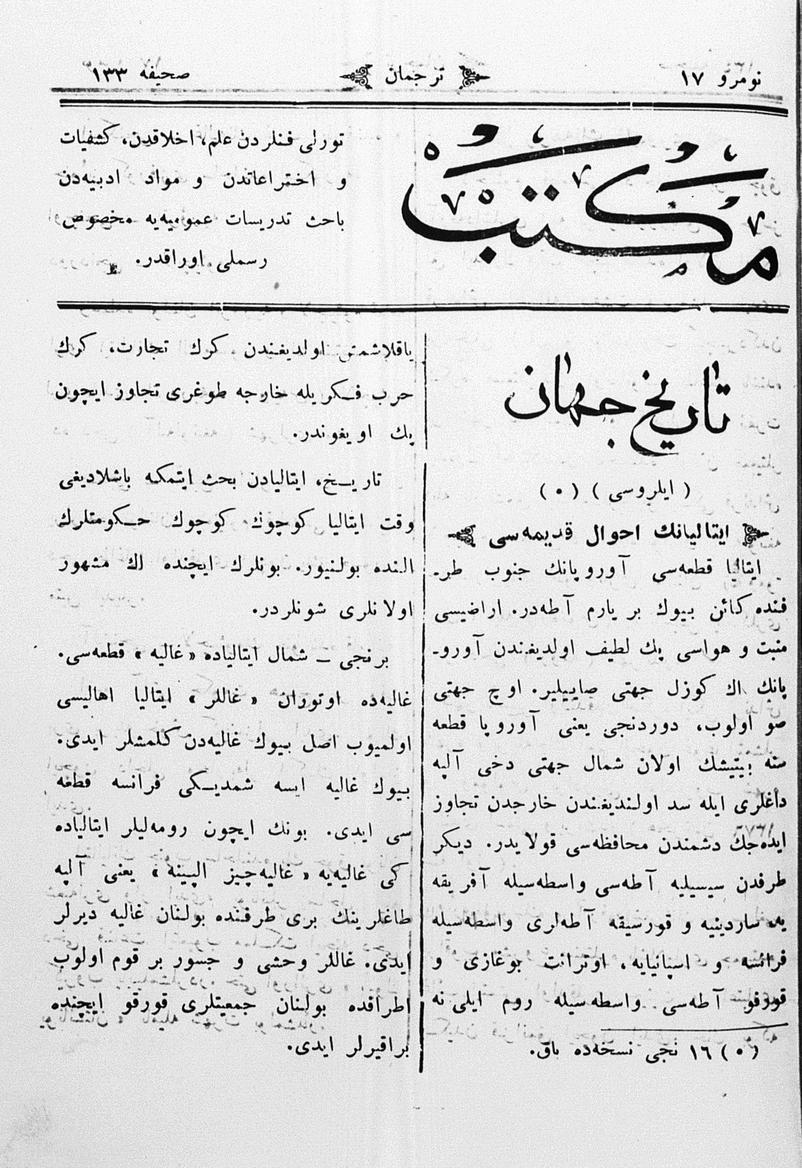 نومرو ١٧
ترجمان
صحیفه ١٣٣
مكتب
تورلی فنلردن علم، اخلاقدن، كشفیات
و اختراعاتدن و مواد ادبیه‌دن
باحث تدریسات عمومیه‌یه مخصوص
رسملی اوراقدر.
تاریخ جهان
( ایلروسی ) ( ٥ )
ایتالیانك احوال قدیمه‌سی
ایتالیا قطعه‌سی آوروپانك جنوب طر۔
فنده كائن بیوك بر یارم آطه‌در. اراضیسی
منبت و هواسی پك لطیف اولدیغندن آورو۔
پانك اك كوزل جهتی صاییلیر. اوچ جهتی
صو اولوب، دوردنجی یعنی آوروپا قطعه
سنه بیتیشك اولان شمال جهتی دخی آلپه
داغلری ایله سد اولندیغندن خارجدن تجاوز
ایده‌جك دشمندن محافظه‌سی قولایدر. دیكر
طرفدن سیسیلیه آطه‌سی واسطه‌سیله آفریقه
یه ساردینیه و قورسیقه آطه‌لری واسطه‌سیله
فرانسه و اسپانیایه، اوترانت بوغازی و
قورفو آطه‌سی واسطه‌سیله روم ایلی نه
( ٥ ) ١٦ نجی نسخه‌ده باق.
یاقلاشمش اولدیغندن كرك تجارت، كرك
حرب فكریله خارجه طوغری تجاوز ایچون
پك اویغوندر.
تاریخ، ایتالیادن بحث ایتمكه باشلادیغی
وقت ایتالیا كوچوك كوچوك حكومتلرك
النده بولنیور. بونلرك ایچنده اك مشهور
اولانلری شونلردر.
برنجی ــ شمال ایتالیاده «غالیه» قطعه‌سی.
غالیه‌ده اوتوران «غاللر» ایتالیا اهالیسی
اولمیوب اصل بیوك غالیه‌دن كلمشلر ایدی.
بیوك غالیه ایسه شمدیكی فرانسه قطعه
سی ایدی. بونك ایچون رومه‌لیلر ایتالیاده
كی غالیه‌یه «غالیه‌چیز الپینه» یعنی آلپه
طاغلرینك بری طرفنده بولنان غالیه دیرلر
ایدی. غاللر وحشی و جسور بر قوم اولوب
اطرافده بولنان جمعیتلری قورقو ایچنده
براقیرلر ایدی.